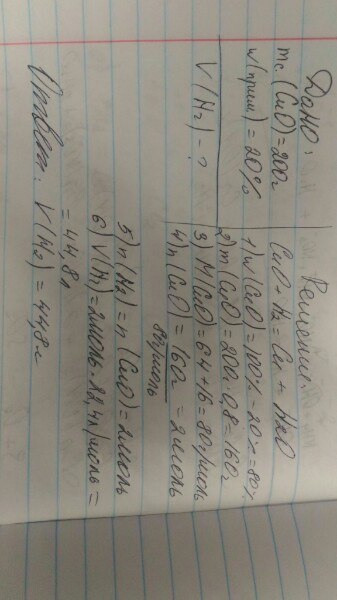 Дано:
mс.(CuO)=200г
w(прим.)=20%
V(H₂)-?
Решение:
CuO+H₂=Cu+H₂O
1) W(CuO)=100%-20%=80%
2) m(CuO)=200·0,8=160г
3) M(CuO)=64+16=80г/моль
4) n(CuO)=160г/80г/моль=2моль
5) n(H₂)=n(CuO)=2моль
6) V(H₂)=2моль·22,4л/моль=
=44,8л
Ответ: V(H₂)=44,8л